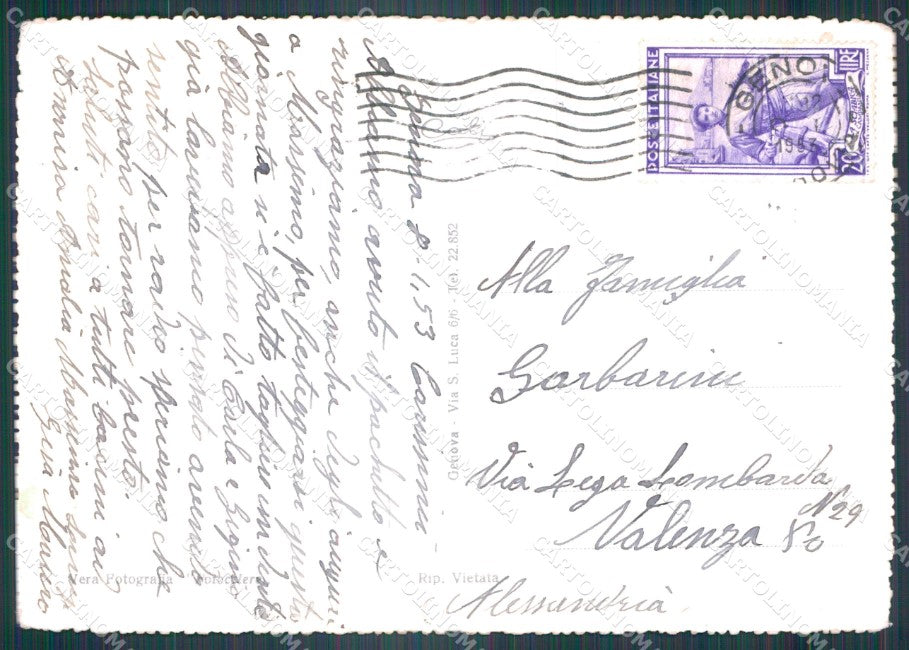 Genova 8-1,53 Carissimi
Abbiamo avuto il pacchetto e
ringraziamo, anche degli auguri
a Massimo, per festeggiare questa
giornata si è fatto
Abbiamo appreso di Carla e Gigino
già la
sentito per radio speriamo che
possano tornare presto.
Saluti cari a tutti bacini ai
Genova - Via S. Luca 6/6 - Tel. 22.852
Vera Fotografia
Rip. Vietata
POSTE ITALIANE
LIRE
20
GENOVA
Alla Famiglia
Garbarini
Via Lega Lombarda
N 29
Valenza Po
Alessandria
CARTOLINOMANIA